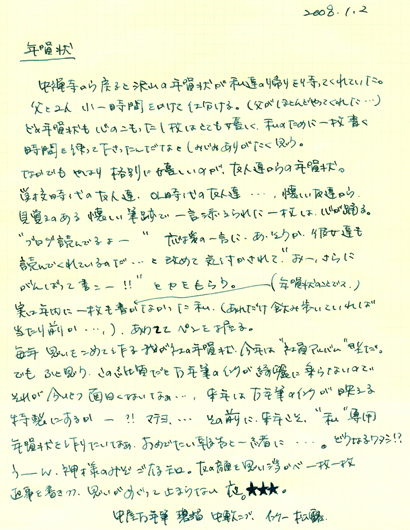 2008.1.2
年賀状
中禅寺から戻ると沢山の年賀状が私達の帰りを待ってくれていた。
父と2人 小一時間をかけて仕分ける。(父がほとんどやってくれた…)
どの年賀状も心のこもった1枚はとても嬉しく、私のために一枚書く
時間を持って下さったんだなぁとしみじみありがたく思う。
なかでもやはり格別に嬉しいのが、友達からの年賀状。
学校時代の友人達、OL時代の友人達…、懐しい友達から、
見覚えのある 懐しい筆跡で一言添えられた一枚は、心が踊る。
"ブログ読んでるよー" 友達の一言に、あ、そうか、彼女達も
読んでくれているのだ…と改めて気付かされて、"おー、さらに
がんばって書こー!!" と力をもらう。(年賀状のことです。)
実は年内に一枚も書かなかった私、(あれだけ飲み歩いていれば
当たり前か…、)、あわててペンをとる。
毎年 思いをこめて作る我が社の年賀状、今年は"社員アルバム"風だ。
でも、ふと思う、この写真だと万年筆のインクが綺麗に乗らないので
それが今ひとつ面白くないなぁ…、来年は万年筆のインクが映える
特製にするかー?! マテヨ、… その前に、来年こそ、"私"専用
年賀状を作りたいなあ、おめでたい報告と一緒に…。どうなるワタシ!?
うーん、神様のみぞご存知。友の顔を思い浮かべ一枚一枚
返事を書きつつ、思いがめぐって止まらない夜。★★★。